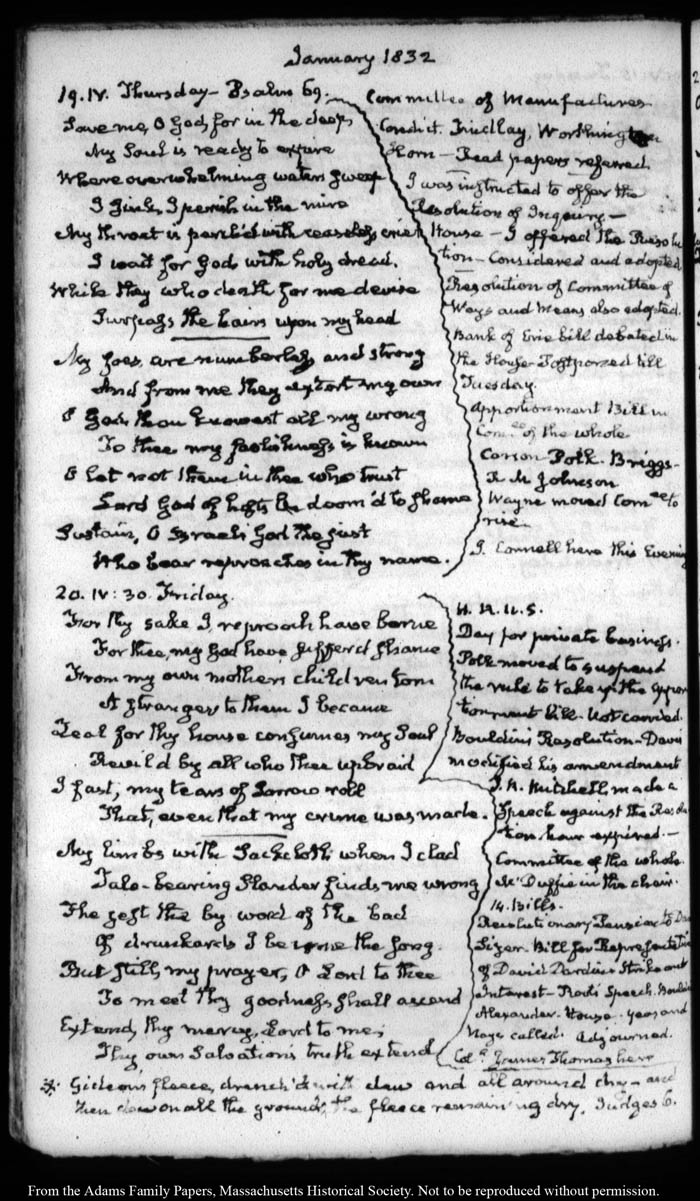 January 1832
19. IV. Thursday – Psalm 69.
Save me, O God, for in the deeps
My Soul is ready to expire
Where overwhelming waters sweep
I sink, I perish in the mire
My throat is parch'd with ceaseless cries
I wait for God with holy dread.
While they who death for me devise
Surpass the hairs upon my head
My foes are numberless and strong
And from me they extort my own
O God, thou knowest all my wrong
To thee my foolishness is known
O let not them in thee who trust
Lord God of hosts be doom'd to shame
Sustain, O Israel's God the just
Who bear reproaches in thy name.
Committee of Manufactures
Condict. Findlay, Worthington
Horn – Read papers referred
I was instructed to offer the
Resolution of Inquiry –
House – I offered the Resolu
tion – Considered and adopted
Resolution of Committee of
Ways and Means also adopted.
Bank of Erie bill debated in
the House. Postponed till
Tuesday.
Apportionment Bill in
Comee. of the whole
Carson Polk. Briggs–
R M Johnson
Wayne moved Comee to
rise.
J. Connell here this Evening
20. IV: 30. Friday.
For thy sake I, reproach have borne
For thee, my God have suffer'd shame
From my own mothers children torn
A stranger to them I became
Zeal for thy house consumes my Soul
Revil'd by all who thee upbraid
I fast; my tears of Sorrow roll
That, even that my crime was made.
My limbs with Sackcloth when I clad
Tale-bearing Slander finds me wrong
The jest the by word of the bad
Of drunkards I become the song.
But still, my prayer, O Lord to thee
To meet thy goodness shall ascend
Extend, thy mercy, Lord to me;
Thy own Salvation's truth extend
H. R. U. S.
Day for private business.
Polk moved to suspend
the rule to take up the appor
tionment bill. Not carried.
Bouldin's Resolution – Davis
modified his amendment
Mitchell made a
Speech against the Resolu
tion. hour expired. –
Committee of the whole.
McDuffie in the chair.
14. Bills.
Revolutionary Pension to
Bill for Representatives
of David Dardin. Strike out
Interest – Speech. Bouldin
Alexander. House. yeas and
Nays called. Adjourned.
Coll. James Thomas here
Gideon's fleece, drench'd with dew and all around dry – and
then dew on all the ground, the fleece remaining dry. Judges 6.
From the Adams Family Papers, Massachusetts Historical Society. Not to be reproduced without permission.